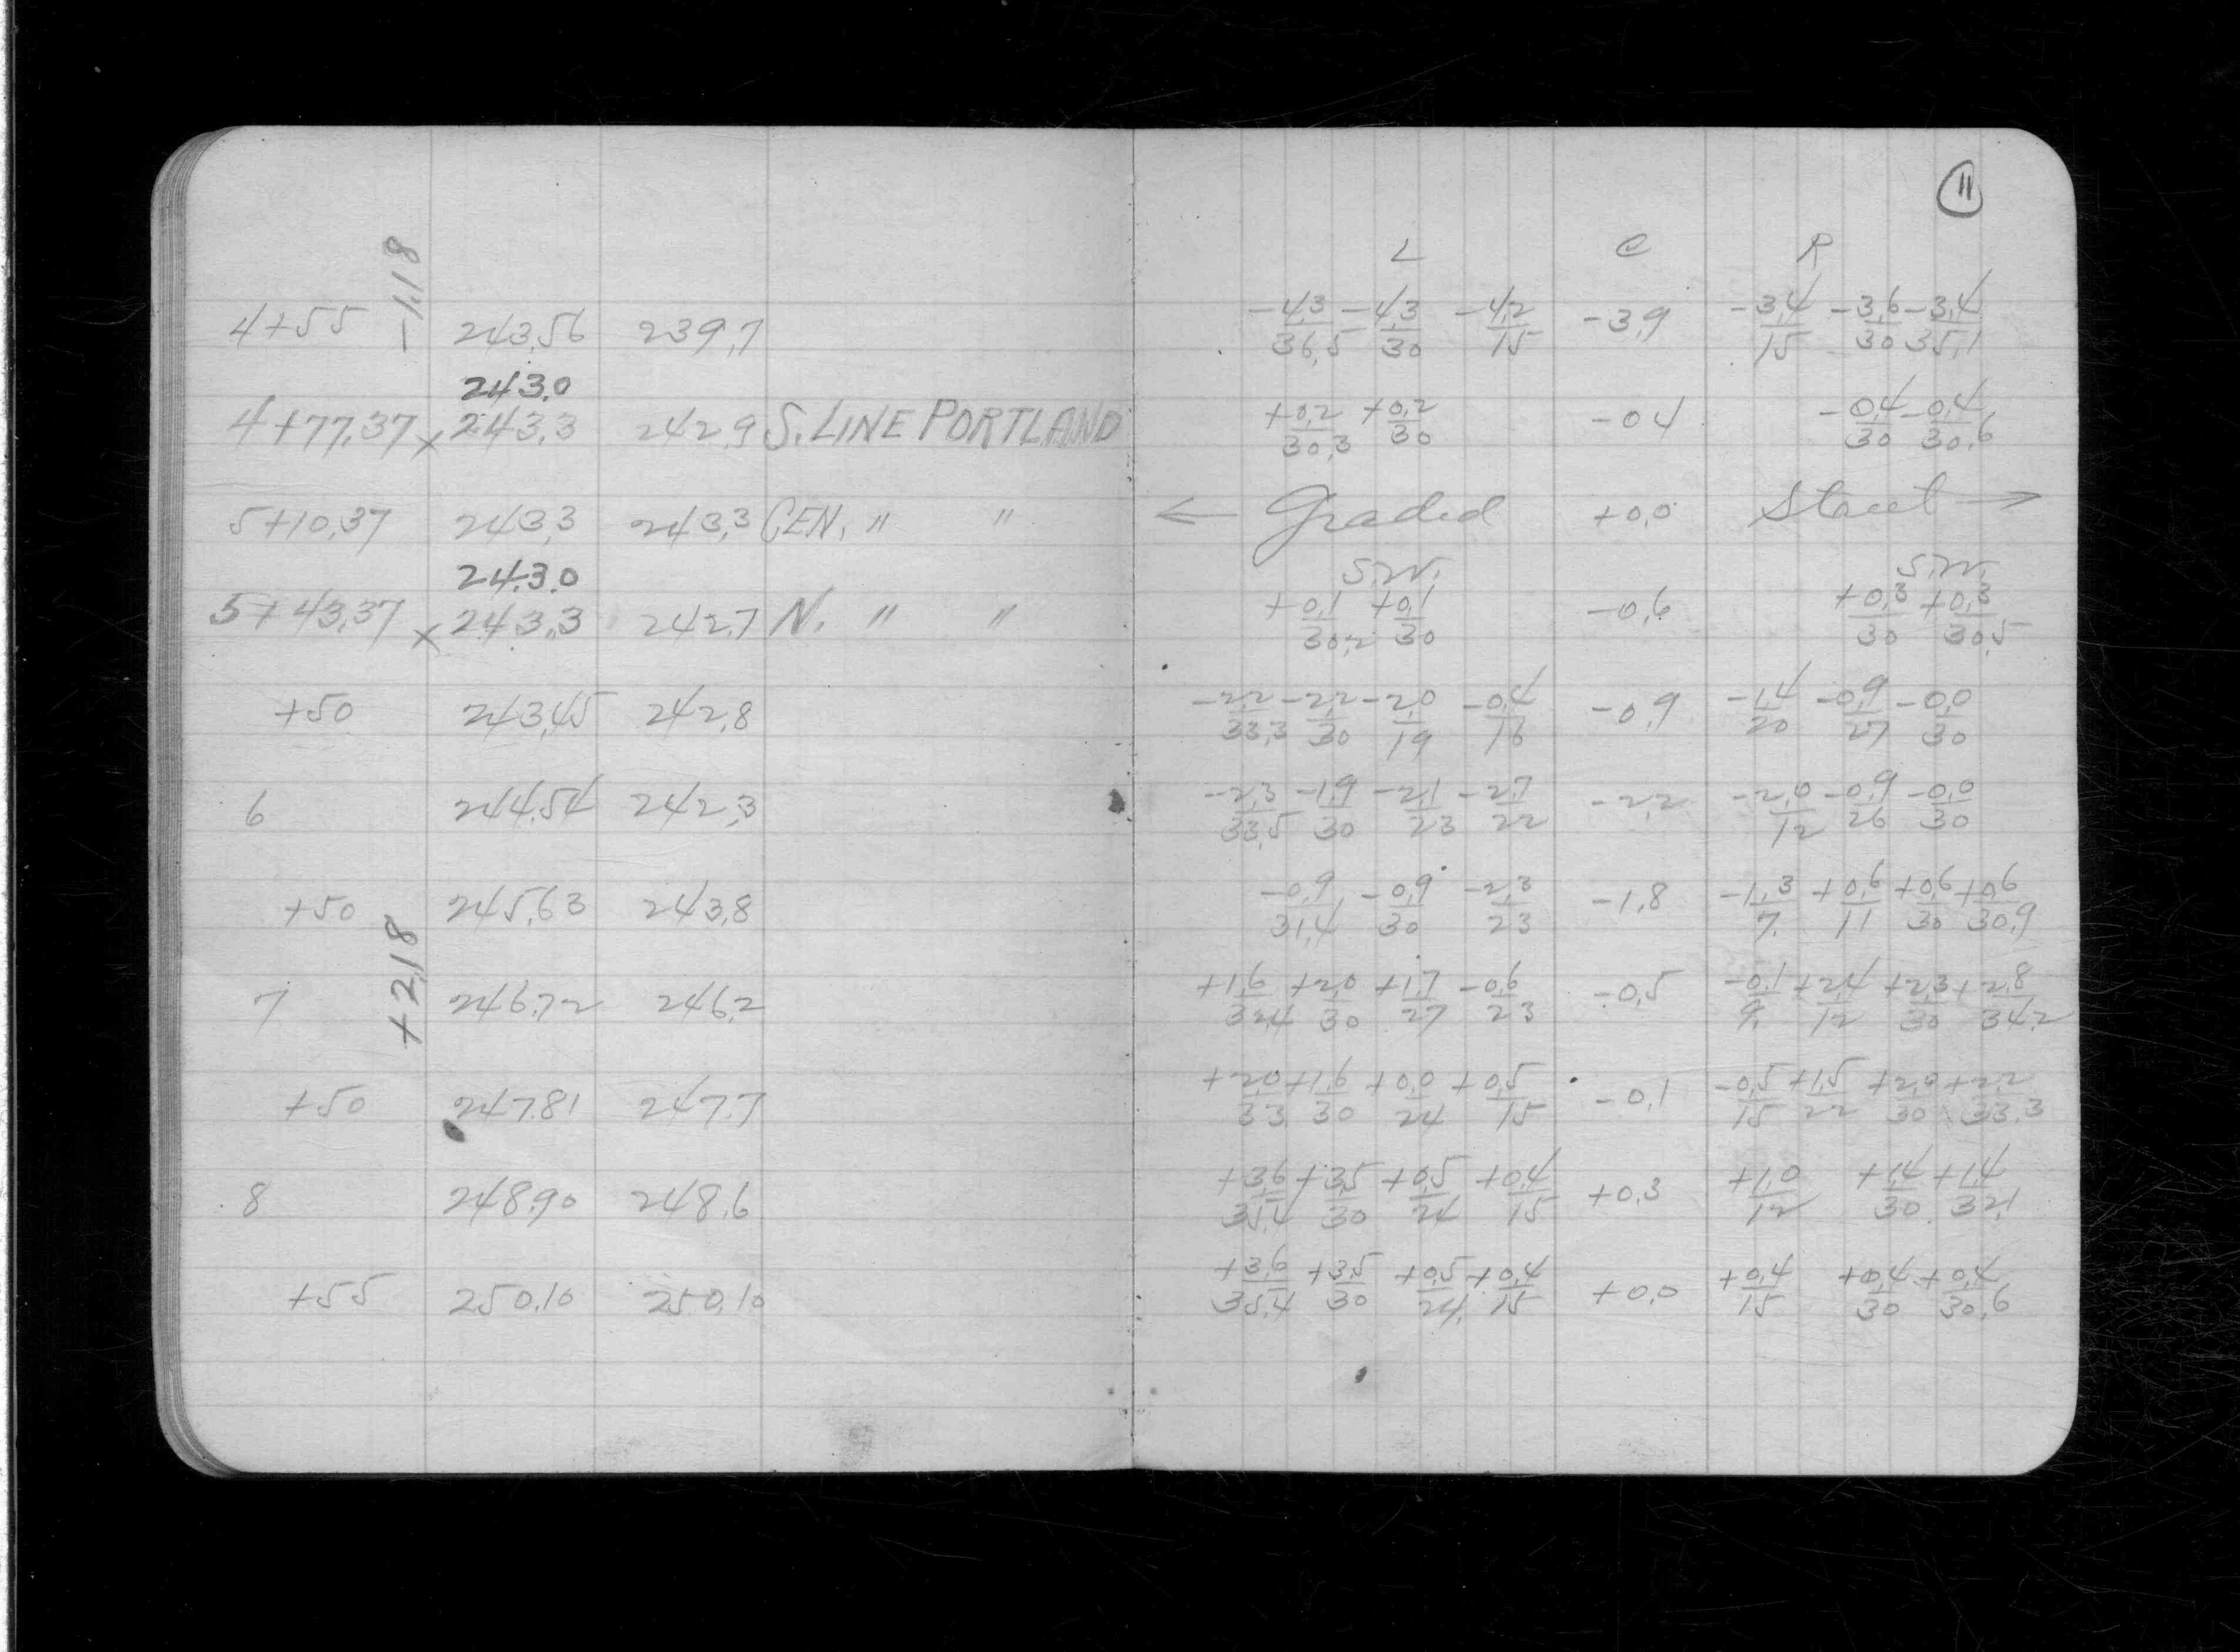 11
L C R
4+55 -1.18 243.56 239.7 -4.3/36.5 -4.3/30 -4.2/15 -3.9 -3.4/15 -3.6/30 -3.4/35.1
243.0
4+77.37 x 243.3 242.9 S. LINE PORTLAND +0.2/30.3 +0.2/30 -0.4 -0.4/30 -0.4/30.6
5+10.37 243.3 243.3 CEN. " " ← Graded +0.0 Street →
243.0 S.W. S.W.
5+43.37 x 243.3 242.7 N. " " +0.1/30.2 +0.1/30 -0.6 +0.3/30 +0.3/30.5
+50 243.45 242.8 -2.2/33.3 -2.2/30 -2.0/19 -0.4/16 -0.9 -1.4/20 -0.9/27 -0.0/30
6 244.54 242.3 -2.3/33.5 -1.9/30 -2.1/23 -2.7/22 -2.2 -2.0/12 -0.9/26 -0.0/30
+50 245.63 243.8 -0.9/31.4 -0.9/30 -2.3/23 -1.8 -1.3/7. +0.6/11 +0.6/30 +0.6/30.9
7 +2.18 246.72 246.2 +1.6/32.4 +2.0/30 +1.7/27 -0.6/23 -0.5 -0.1/9. +2.4/12 +2.3/30 +2.8/34.2
+50 247.81 247.7 +2.0/33 +1.6/30 +0.0/24 +0.5/15 -0.1 -0.5/15 +1.5/22 +2.0/30 +2.2/33.3
8 248.90 248.6 +3.6/35.4 +3.5/30 +0.5/24 +0.4/15 +0.3 +1.0/12 +1.4/30 +1.4/32.1
+55 250.10 250.10 +3.6/35.4 +3.5/30 +0.5/24. +0.4/15 +0.0 +0.4/15 +0.4/30 +0.4/30.6